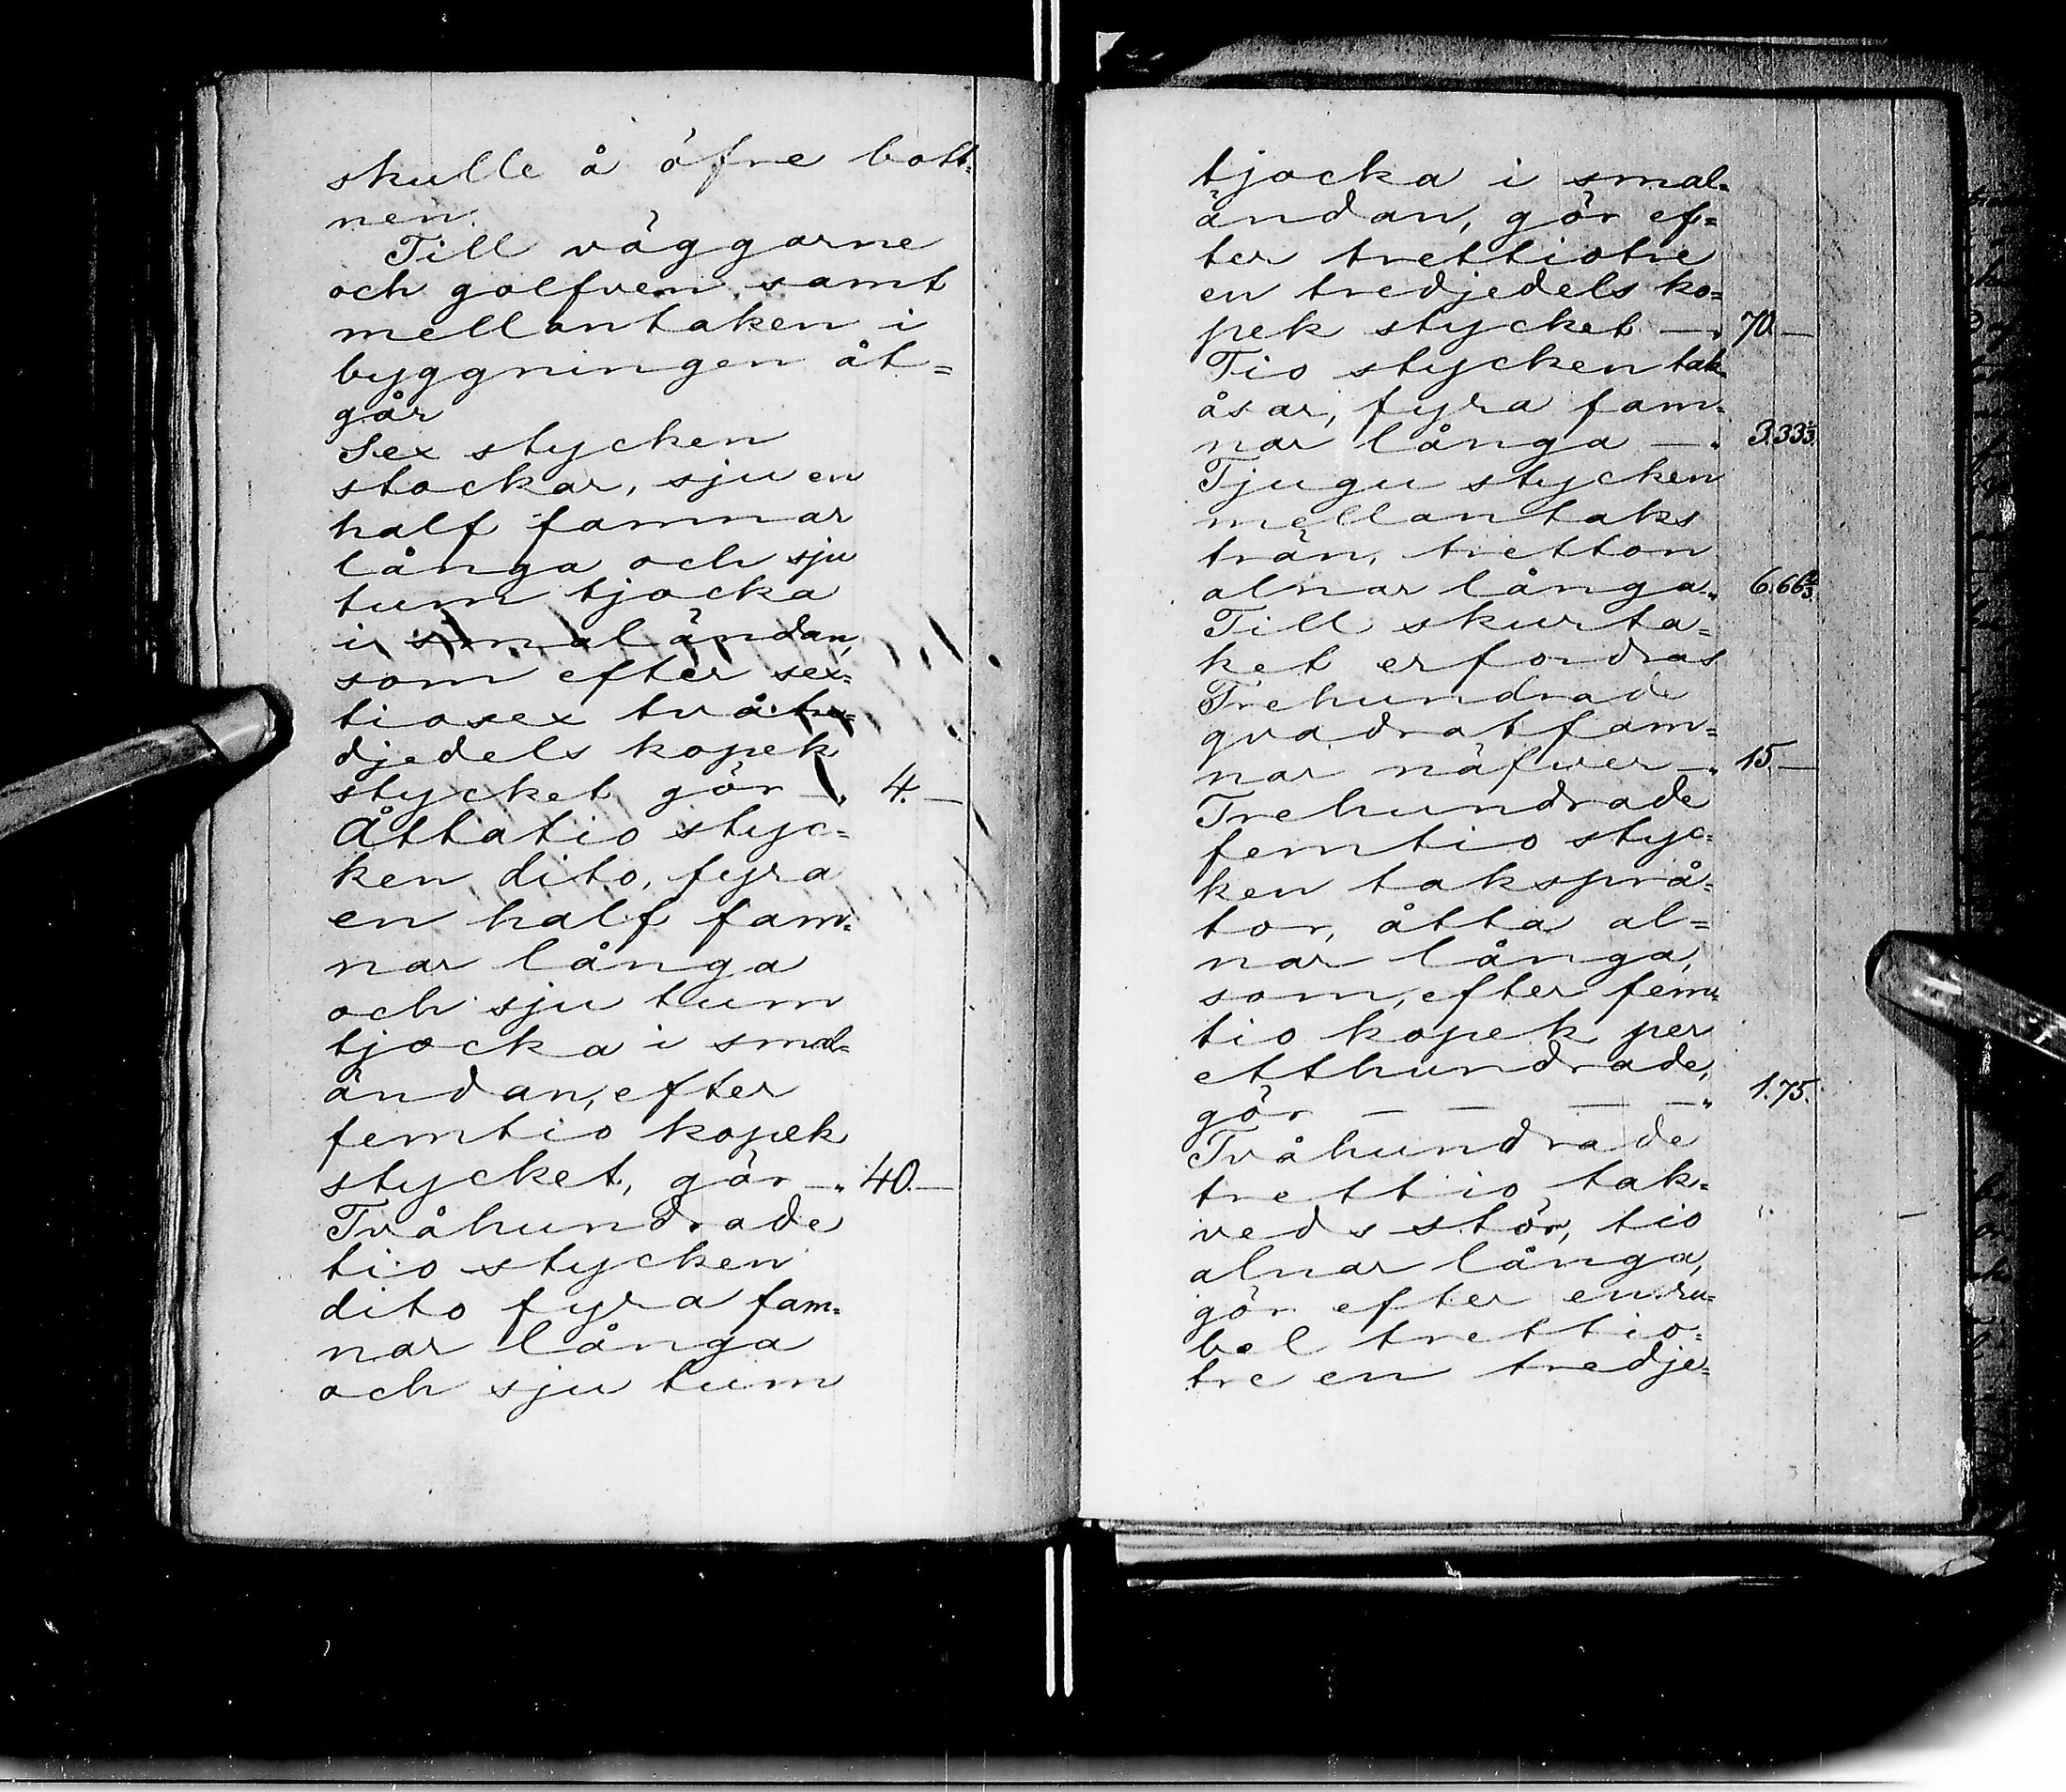 skulle å öfre bott=
nen.
Till väggarne
och golfven samt
mellantaken i
byggningen åt=
går
Sex stycken
stockar, sju en
half famnar
långa och sju
tum tjocka
i smaländan,
som efter sex=
tiosex tvåtre=
djedels kopek
stycket gör —„ 4.—
Åttatio styc=
ken dito, fyra
en half fam=
nar långa
och sju tum
tjocka i smal=
ändan, efter
femtio kopek
stycket, gör —„ 40.—
Tvåhundrade
tio stycken
dito fyra fam=
nar långa
och sju tum
tjocka i smal=
ändan, gör ef=
ter trettiotre
en tredjedels ko=
pek stycket —„ 70.—
Tio stycken tak=
åsar, fyra fam=
nar långa —„ 3.33⅓.
Tjugu stycken
mellantaks
trän, tretton
alnar långa „ 6.66⅔.
Till skurta=
ket erfordras
Trehundrade
qvadratfam=
nar näfver —„ 15.—
Trehundrade
femtio styc=
ken taksprå=
tor, åtta al=
nar långa,
som, efter fem=
tio kopek per
etthundrade,
gör — — — —„ 1.75.
Tvåhundrade
trettio tak=
veds stör, tio
alnar långa,
gör efter en ru=
bel trettio=
tre en tredje=